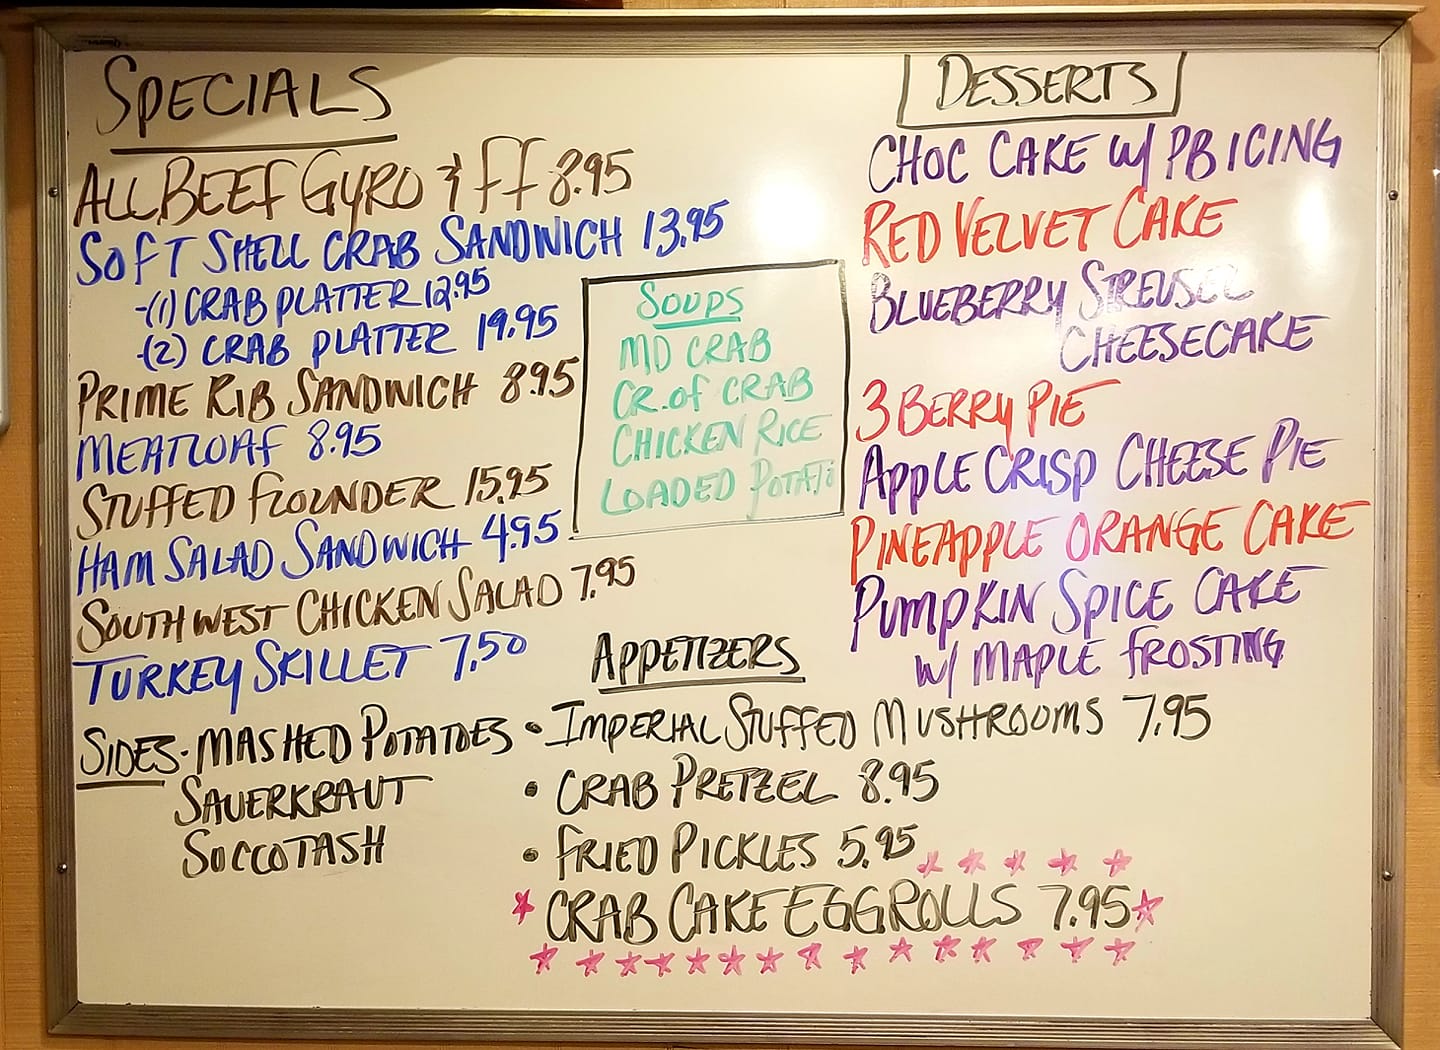 SPECIALS
ALL BEEF GYRO & FF 8.95
SOFT SHELL CRAB SANDWICH 13.95
-(1) CRAB PLATTER 12.95
-(2) CRAB PLATTER 19.95
PRIME RIB SANDWICH 8.95
MEATLOAF 8.95
STUFFED FLOUNDER 15.95
HAM SALAD SANDWICH 4.95
SOUTHWEST CHICKEN SALAD 7.95
TURKEY SKILLET 7.50
SIDES- MASHED POTATOES
SAUERKRAUT
SOCCOTASH
SOUPS
MD CRAB
CR. OF CRAB
CHICKEN RICE
LOADED POTATO
APPETIZERS
• IMPERIAL STUFFED MUSHROOMS 7.95
• CRAB PRETZEL 8.95
• FRIED PICKLES 5.95
CRAB CAKE EGGROLLS 7.95
DESSERTS
CHOC CAKE W/ PB ICING
RED VELVET CAKE
BLUEBERRY STREUSEL
CHEESECAKE
3 BERRY PIE
APPLE CRISP CHEESE PIE
PINEAPPLE ORANGE CAKE
PUMPKIN SPICE CAKE
W/ MAPLE FROSTING